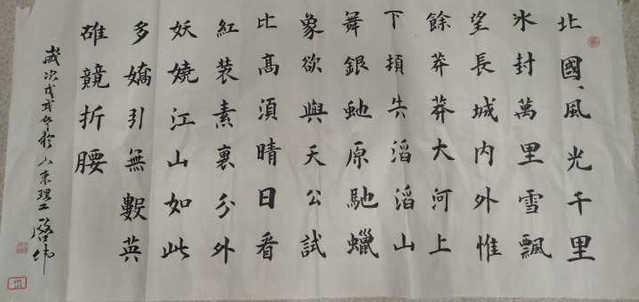 北國風光千里
氷封萬里雪飄
望長城内外惟
餘莽莽大河上
下頓失滔滔山
舞銀虵原馳蠟
象欲與天公試
比高須晴日看
紅裝素裹分外
妖嬈江山如此
多嬌引無數英
雄競折腰
歲次戊戌年於山東理工